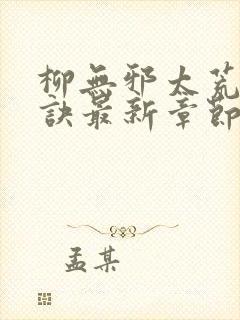 柳無邪太荒
訣最新章節
孟某